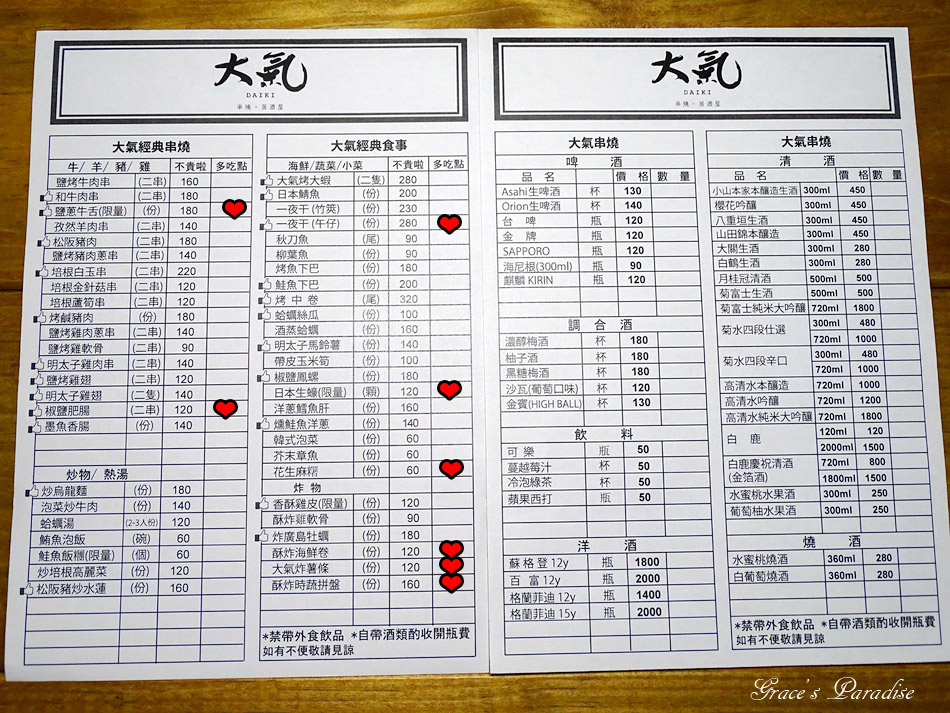 大氣
DAIKI
串燒。居酒屋
大氣經典串燒
牛/ 羊/ 豬/ 雞 不貴啦 多吃點
鹽烤牛肉串 (二串) 160
和牛肉串 (二串) 180
鹽蔥牛舌(限量) (份) 180
孜然羊肉串 (二串) 140
松阪豬肉 (二串) 180
鹽烤豬肉蔥串 (二串) 140
培根白玉串 (二串) 220
培根金針菇串 (二串) 120
培根蘆筍串 (二串) 120
烤鹹豬肉 (份) 180
鹽烤雞肉蔥串 (二串) 140
鹽烤雞軟骨 (二串) 90
明太子雞肉串 (二串) 140
鹽烤雞翅 (二串) 120
明太子雞翅 (二隻) 140
椒鹽肥腸 (二串) 120
墨魚香腸 (份) 140
炒物/ 熱湯
炒烏龍麵 (份) 180
泡菜炒牛肉 (份) 140
蛤蠣湯 (2-3人份) 120
鮪魚泡飯 (碗) 60
鮭魚飯糰(限量) (個) 60
炒培根高麗菜 (份) 120
松阪豬炒水蓮 (份) 160
大氣經典食事
海鮮/蔬菜/小菜 不貴啦 多吃點
大氣烤大蝦 (二隻) 280
日本鯖魚 (份) 200
一夜干 (竹筴) (份) 230
一夜干 (午仔) (份) 280
秋刀魚 (尾) 90
柳葉魚 (份) 90
烤魚下巴 (份) 180
鮭魚下巴 (份) 200
烤 中 卷 (尾) 320
蛤蠣絲瓜 (份) 100
酒蒸蛤蠣 (份) 160
明太子馬鈴薯 (份) 140
帶皮玉米筍 (份) 100
椒鹽鳳螺 (份) 180
日本生蠔(限量) (顆) 120
洋蔥鱈魚肝 (份) 160
燻鮭魚洋蔥 (份) 140
韓式泡菜 (份) 60
芥末章魚 (份) 60
花生麻糬 (份) 60
炸 物
香酥雞皮(限量) (份) 120
酥炸雞軟骨 (份) 90
炸廣島牡蠣 (份) 180
酥炸海鮮卷 (份) 120
大氣炸薯條 (份) 120
酥炸時蔬拼盤 (份) 160
*禁帶外食飲品 *自帶酒類酌收開瓶費
如有不便敬請見諒
大氣
DAIKI
串燒。居酒屋
大氣串燒
啤 酒
品 名 價 格 數 量
Asahi生啤酒 杯 130
Orion生啤酒 杯 140
台 啤 瓶 120
金 牌 瓶 120
SAPPORO 瓶 120
海尼根(300ml) 瓶 90
麒麟 KIRIN 瓶 120
調 合 酒
濃醇梅酒 杯 180
柚子酒 杯 180
黑糖梅酒 杯 180
沙瓦(葡萄口味) 杯 120
金賓(HIGH BALL) 杯 130
飲 料
可 樂 瓶 50
蔓越莓汁 杯 50
冷泡綠茶 杯 50
蘋果西打 瓶 50
洋 酒
蘇 格 登 12y 瓶 1800
百 富 12y 瓶 2000
格蘭菲迪 12y 瓶 1400
格蘭菲迪 15y 瓶 2000
大氣串燒
清 酒
品 名 價 格 數 量
小山本家本釀造生酒 300ml 450
櫻花吟釀 300ml 450
八重垣生酒 300ml 450
山田錦本釀造 300ml 450
大關生酒 300ml 280
白鶴生酒 300ml 280
月桂冠清酒 500ml 500
菊富士生酒 500ml 500
菊富士純米大吟釀 720ml 1800
菊水四段仕選 300ml 480
720ml 1000
菊水四段辛口 300ml 480
720ml 1000
高清水本釀造 720ml 1000
高清水吟釀 720ml 1200
高清水純米大吟釀 720ml 1800
白 鹿 120ml 120
2000ml 1500
白鹿慶祝清酒 720ml 800
(金箔酒) 1800ml 1500
水蜜桃水果酒 300ml 250
葡萄柚水果酒 300ml 250
燒 酒
水蜜桃燒酒 360ml 280
白葡萄燒酒 360ml 280
*禁帶外食飲品 *自帶酒類酌收開瓶費
如有不便敬請見諒
Grace's Paradise